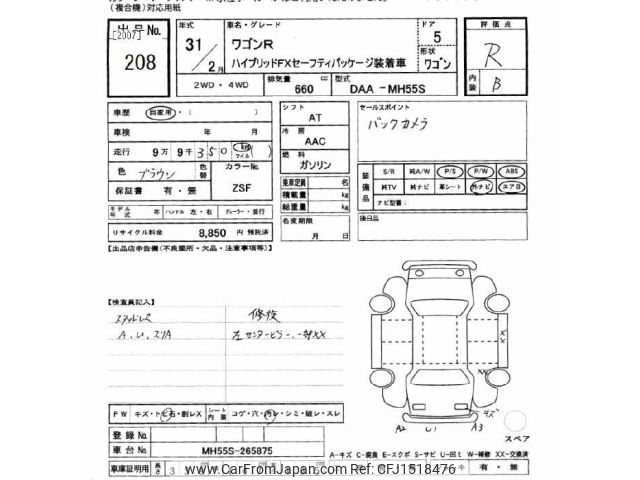 (複合機)対応用紙
出品No.
[2007]
208
年式
31/2月
車名・グレード
ワゴンR
ハイブリッドFXセーフティパッケージ装着車
ドア
5
形状
ワゴン
評価点
R
内装
B
2WD・4WD
排気量
660
cc
型式
DAA-MH55S
車歴
自家用・( )
車検
年 月
走行
9万9千350
km
マイル
( )
色
ブラウン
色替
カラーNo.
ZSF
保証書
有・無
モデル年式
年
ハンドル
左・右
ディーラー・並行
リサイクル料金
8,850
円
預託済
シフト
AT
冷房
AAC
燃料
ガソリン
乗車定員
名
積載量
kg
総重量
kg
名変期限
月 日
セールスポイント
バックカメラ
装備品
S/R
純A/W
P/S
P/W
ABS
純TV
純ナビ
革シート
外ナビ
エアB
ナビ型番:
後日品
【出品店申告欄(不良箇所・欠品・注意事項等)】
【検査員記入】
スタッドレス
A.U.スリA
修復
左センターピラー、一部XX
XX
XX
キズ
A2
U1
A3
スペア
FW
キズ・トビ石・割レX
シート内装
コゲ・穴・汚レ・シミ・破レ・スレ
登録No.
車台No.
MH55S-265875
A-キズ C-腐食 E-エクボ S-サビ U-凹ミ W-補修 XX-交換済
車庫証明用
長さ
3
キ
有・無
www.CarFromJapan.com Ref:CFJ1518476